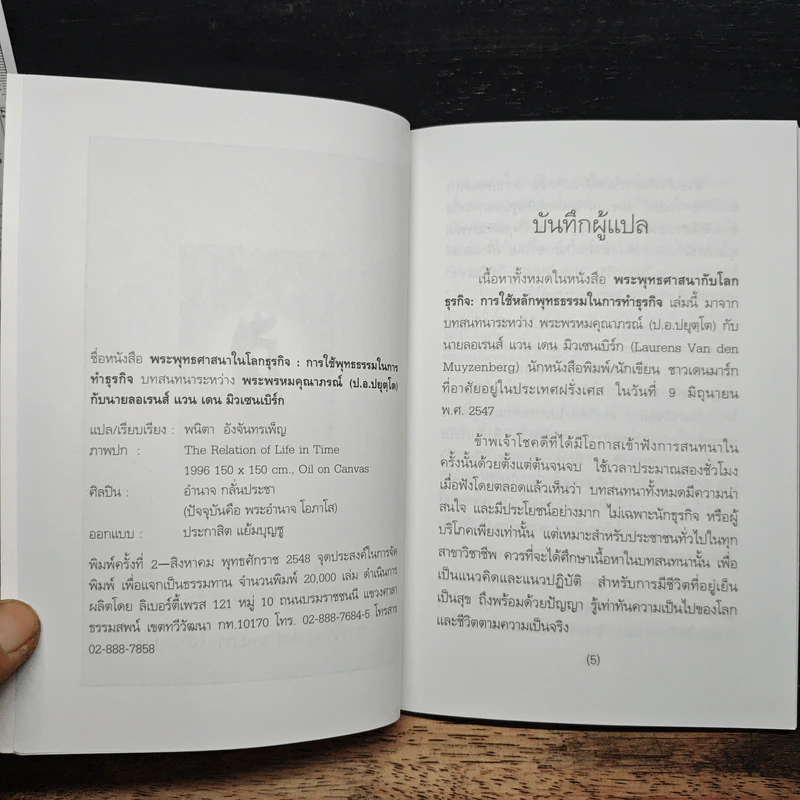 ชื่อหนังสือ พระพุทธศาสนาในโลกธุรกิจ : การใช้พุทธธรรมในการ
ทำธุรกิจ บทสนทนาระหว่าง พระพรหมคุณาภรณ์ (ป.อ.ปยุตฺโต)
กับนายลอเรนส์ แวน เดน มิวเซนเบิร์ก
แปล/เรียบเรียง : พนิตา อังจันทรเพ็ญ
ภาพปก : The Relation of Life in Time
1996 150 x 150 cm., Oil on Canvas
ศิลปิน : อำนาจ กลั่นประชา
(ปัจจุบันคือ พระอำนาจ โอภาโส)
ออกแบบ : ประกาสิต แย้มบุญชู
พิมพ์ครั้งที่ 2—สิงหาคม พุทธศักราช 2548 จุดประสงค์ในการจัด
พิมพ์ เพื่อแจกเป็นธรรมทาน จำนวนพิมพ์ 20,000 เล่ม ดำเนินการ
ผลิตโดย ลิเบอร์ตี้เพรส 121 หมู่ 10 ถนนบรมราชชนนี แขวงศาลา
ธรรมสพน์ เขตทวีวัฒนา กท.10170 โทร. 02-888-7684-5 โทรสาร
02-888-7858
บันทึกผู้แปล
เนื้อหาทั้งหมดในหนังสือ พระพุทธศาสนากับโลก
ธุรกิจ: การใช้หลักพุทธธรรมในการทำธุรกิจ เล่มนี้ มาจาก
บทสนทนาระหว่าง พระพรหมคุณาภรณ์ (ป.อ.ปยุตฺโต) กับ
นายลอเรนส์ แวน เดน มิวเซนเบิร์ก (Laurens Van den
Muyzenberg) นักหนังสือพิมพ์/นักเขียน ชาวเดนมาร์ก
ที่อาศัยอยู่ในประเทศฝรั่งเศส ในวันที่ 9 มิถุนายน
พ.ศ. 2547
ข้าพเจ้าโชคดีที่ได้มีโอกาสเข้าฟังการสนทนาใน
ครั้งนั้นด้วยตั้งแต่ต้นจนจบ ใช้เวลาประมาณสองชั่วโมง
เมื่อฟังโดยตลอดแล้วเห็นว่า บทสนทนาทั้งหมดมีความน่า
สนใจ และมีประโยชน์อย่างมาก ไม่เฉพาะนักธุรกิจ หรือผู้
บริโภคเพียงเท่านั้น แต่เหมาะสำหรับประชาชนทั่วไปในทุก
สาขาวิชาชีพ ควรที่จะได้ศึกษาเนื้อหาในบทสนทนานั้น เพื่อ
เป็นแนวคิดและแนวปฏิบัติ สำหรับการมีชีวิตที่อยู่เย็น
เป็นสุข ถึงพร้อมด้วยปัญญา รู้เท่าทันความเป็นไปของโลก
และชีวิตตามความเป็นจริง
(5)